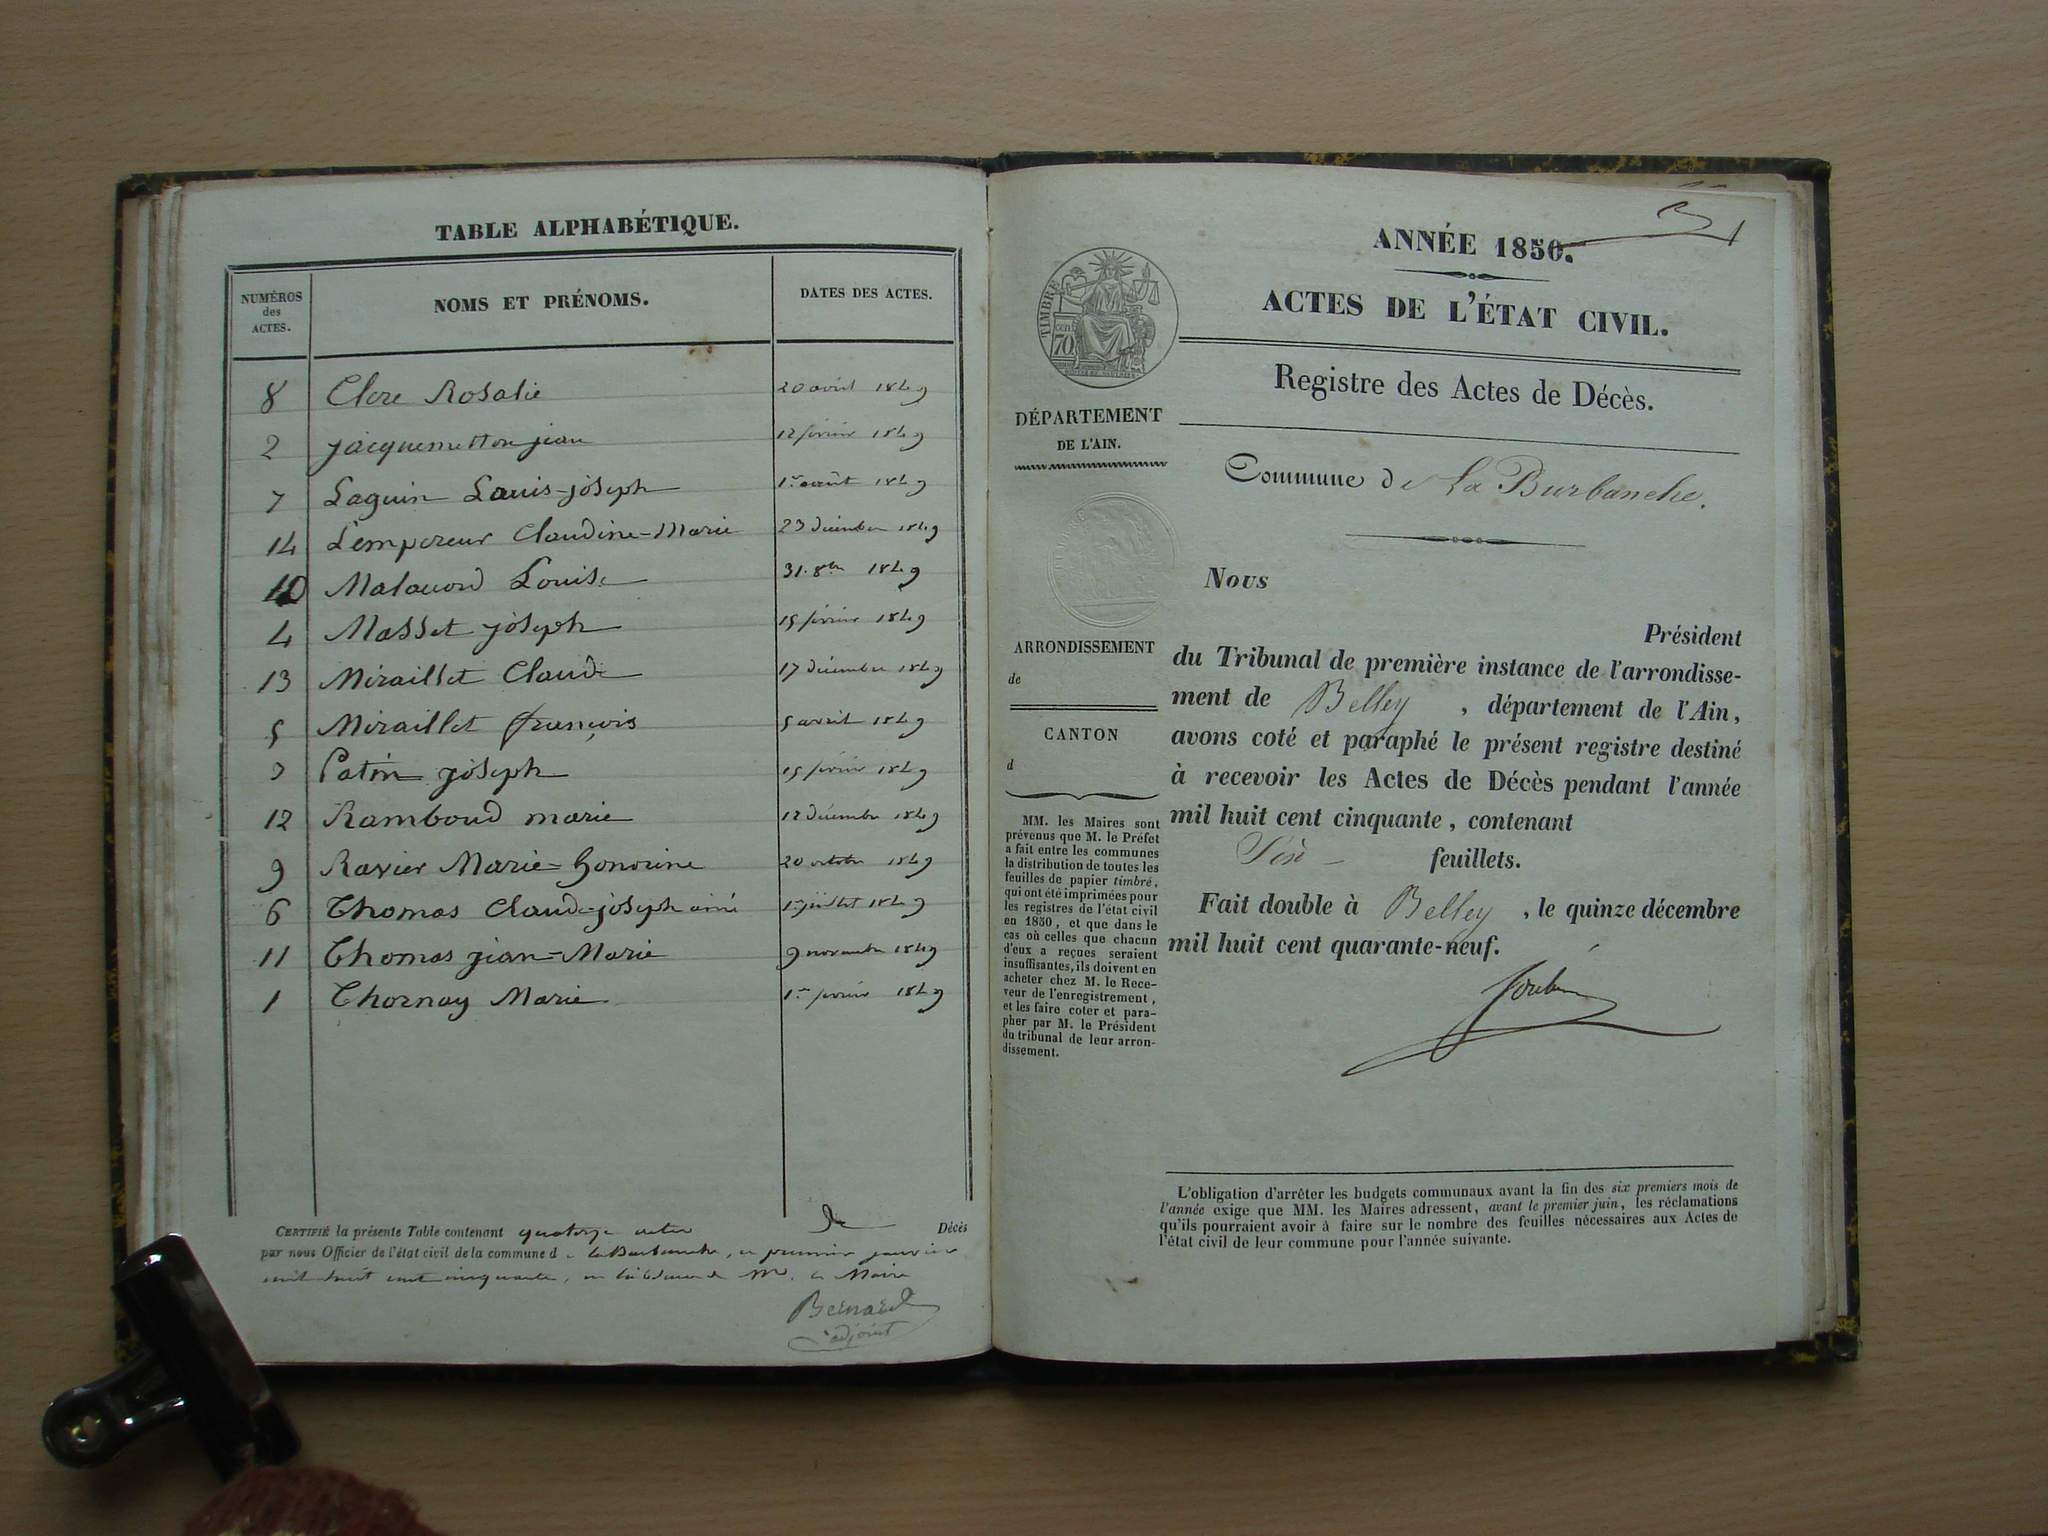 TABLE ALPHABÉTIQUE.
NUMÉROS des ACTES. NOMS ET PRÉNOMS. DATES DES ACTES.
8 Clere Rosalie 20 avril 1849
2 jacquemetton jean 12 février 1849
7 Laguin Louis-joseph 1er août 1849
14 L'empereur Claudine-Marie 23 décembre 1849
10 Louise 31. 8bre 1849
4 Masset joseph 15 février 1849
13 Miraillet Claude 17 décembre 1849
5 Miraillet françois 5 avril 1849
3 Patin joseph 15 février 1849
12 Ramboud marie 12 décembre 1849
9 Ravier Marie-honorine 20 octobre 1849
6 Thomas Claude-joseph aimé 1er juillet 1849
11 Thomas jean-Marie 9 novembre 1849
1 Thornay Marie 1er février 1849
CERTIFIÉ la présente Table contenant quatorze actes de Décès
par nous Officier de l'état civil de la commune de la Burbanche, ce premier janvier
mil huit cent cinquante, en l'absence de M. le Maire
Bernard
L'adjoint
1
ANNÉE 1850.
ACTES DE L'ÉTAT CIVIL.
TIMBRE
70
cen
Registre des Actes de Décès.
DÉPARTEMENT
DE L'AIN.
Commune de La Burbanche.
Nous
Président
du Tribunal de première instance de l'arrondisse-
ment de Belley, département de l'Ain,
avons coté et paraphé le présent registre destiné
à recevoir les Actes de Décès pendant l'année
mil huit cent cinquante, contenant
Six feuillets.
Fait double à Belley, le quinze décembre
mil huit cent quarante-neuf.
ARRONDISSEMENT
de
CANTON
d
MM. les Maires sont
prévenus que M. le Préfet
a fait entre les communes
la distribution de toutes les
feuilles de papier timbré,
qui ont été imprimées pour
les registres de l'état civil
en 1850, et que dans le
cas où celles que chacun
d'eux a reçues seraient
insuffisantes, ils doivent en
acheter chez M. le Rece-
veur de l'enregistrement,
et les faire coter et para-
pher par M. le Président
du tribunal de leur arron-
dissement.
L'obligation d'arrêter les budgets communaux avant la fin des six premiers mois de
l'année exige que MM. les Maires adressent, avant le premier juin, les réclamations
qu'ils pourraient avoir à faire sur le nombre des feuilles nécessaires aux Actes de
l'état civil de leur commune pour l'année suivante.